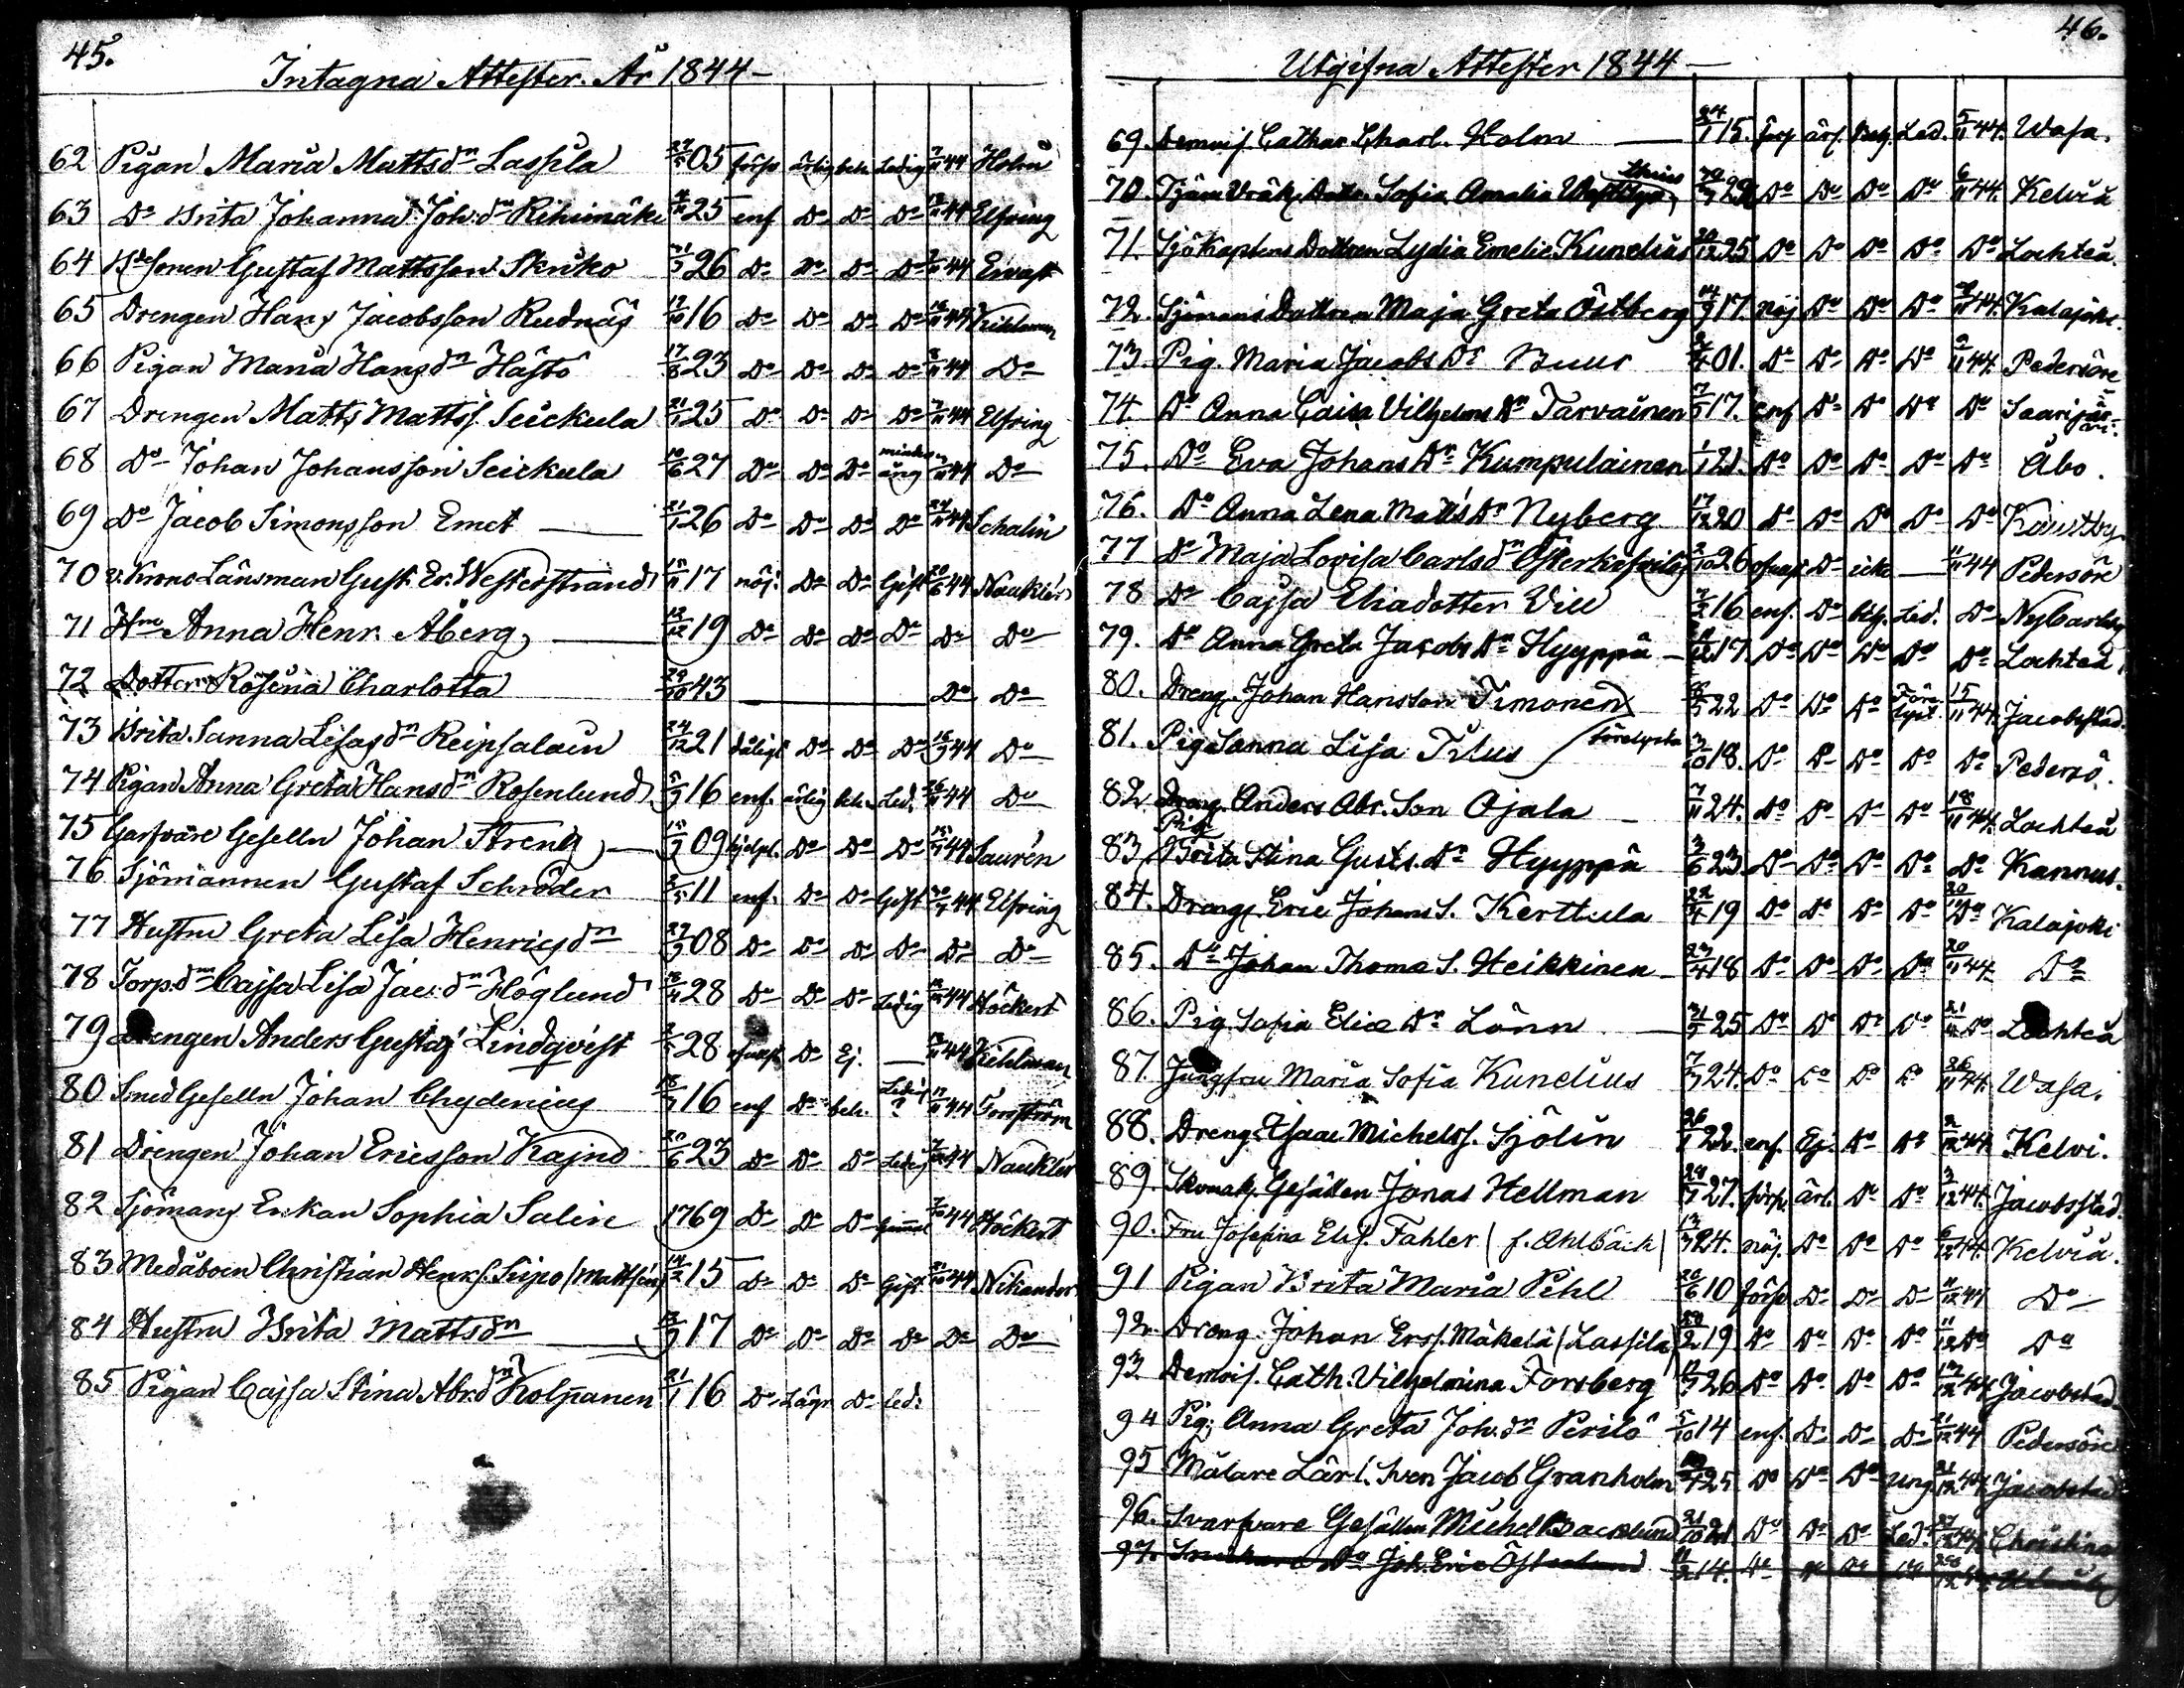 45.
Intagna Attester År 1844
62 Pigan Maria Mattsdn Lassila 05 förs ärlig bek. Ledig 44 Holm
63 Do Brita Johanna Joh:dn Rihimäki 25 enf Do Do Do 44 Elfving
64 Gustaf Mattsson Skriko 26 Do Do Do Do 44
65 Drengen Hans Jacobsson Rudnäs 16 Do Do Do Do 44
66 Pigan Maria Hansdn Hästö 17/8 23 Do Do Do Do 44 Do
67 Drengen Matts Mattss. Seickula 25 Do Do Do Do 44 Elfving
68 Do Johan Johansson Seickula 10/6 27 Do Do Do 44 Do
69 Do Jacob Simonsson Emet 21/1 26 Do Do Do Do 44 Schalin
70 v. Krono Länsman Gust. Er. Westerstrand 17 nöj. Do Do Gift 44 Nauklér
71 Anna Henr. Åberg 19 Do Do Do Do Do Do
72 Dotter Rosina Charlotta 29/10 43 Do Do
73 Brita Sanna Lisasdn Reipsalain 24/12 21 dåligt Do Do Do 44 Do
74 Pigan Anna Greta Hansdn Rosenlund 16 enf. ärlig bek. Led. 44 Do
75 Garfvare Geselln Johan Streng 09 Do Do Do 44 Saurén
76 Sjömannen Gustaf Schröder 11 enf. Do Do Gift 44 Elfving
77 Hustru Greta Lisa Henricsdn 08 Do Do Do Do Do Do
78 Torp.dn Cajsa Lisa Jac:dn Höglund 28 Do Do Do Ledig 44 Höckert
79 Drengen Anders Gustaf Lindqvist 28 Do Ej. 44
80 Smed Geselln Johan Chydenius 16 enf Do bek. Ledig ? 44 Forsström
81 Drengen Johan Ericsson Kajno 23 Do Do Do Ledig 44 Nauklér
82 Sjömans Enkan Sophia Salin 1769 Do Do Do 44 Höckert
83 Medåboen Christian Henrs. Seipo (Mattsén) 15 Do Do Do Gift 44 Nikander
84 Hustru Brita Mattsdn 17 Do Do Do Do Do Do
85 Pigan Cajsa Stina Abr.dn Kolpanen 21/1 16 Do Do Led:
46.
Utgifna Attester 1844
69. Demois. Cathar. Charl. Holm 24/1 15. förs ärl. Beg. Led. 5/11 44. Wasa.
70. Sofia Amalia Do Do Do Do 6/11 44. Kelviå
71. Sjökaptens Dottren Lydia Emelie Kunelius 25 Do Do Do Do Do Lochteå.
72. Sjömans Dottren Maja Greta Östberg 14/9 17. nöj Do Do Do 44. Kalajoki.
73. Pig. Maria Jacobs Dr Buur 01. Do Do Do Do 44. Pedersöre
74. Do Anna Caisa Vilhelms Dr Tarvainen 17. enf Do Do Do Do Saarijärvi.
75. Do Eva Johans Dr Kumpulainen 1/1 21. Do Do Do Do Do Åbo.
76. Do Anna Lena Matts Dr Nyberg 17/12 20 Do Do Do Do Do Kaustby
77 Do Maja Lovisa Carlsdn 26 Do icke 11/11 44 Pedersöre
78 Do Cajsa Eliadotter Vill 16 enf. Do beg. Led. Do NyCarleby
79. Do Anna Greta Jacobs Dr Hyyppä 17. Do Do Do Do Do Lochteå
80. Dreng. Johan Hansson Timonen 22 Do Do Do 15/11 44. Jacobstad.
81. Pig. Sanna Lisa Tilus 3/10 18. Do Do Do Do Do Pedersö.
82. Dreng. Anders Abr. Son Ojala 7/11 24. Do Do Do Do 18/11 44. Lochteå
83. Pig. Brita Stina Gusts. Dr Hyyppä 3/6 23 Do Do Do Do Do Kannus.
84. Dreng. Eric Johans S. Kerttula 22/4 19 Do Do Do Do Do Kalajoki
85. Do Johan Thoma S. Heikkinen 23/4 18 Do Do Do Do 20/11 44. Do
86. Pig. Sofia Eliæ Dr Lönn 25 Do Do Do Do Do Lochteå
87. Jungfru Maria Sofia Kunelius 24. Do Do Do Do 26/11 44. Wasa.
88. Dreng. Isaac Michelss. Sjölin 26/1 22. enf. Ej. Do Do 2/12 44. Kelvi.
89. Skomak. Gesällen Jonas Hellman 27. förs. ärl. Do Do 3/12 44. Jacobsstad.
90. Fru Josefina Elis. Fahler (f. Ahlbäck) 13/3 24. nöj. Do Do Do 6/12 44. Kelviå.
91 Pigan Brita Maria Pihl 26/6 10 förs Do Do Do 11/12 44 Do
92. Dreng. Johan Erss. Mäkelä (Lassila) 19 Do Do Do Do 11/12 Do Do
93 Demois. Cath. Vilhelmina Forsberg 26 Do Do Do Do 13/12 44 Jacobstad
94 Pig. Anna Greta Joh.dn Perilö 5/10 14 enf. Do Do Do 21/12 44 Pedersöre
95 Målare Lärl. Sven Jacob Granholm 25 Do Do Do ung 21/12 44 Jacobstad
96. Svarfvare Gesällen Michel Backlund 21/10 21 Do Do Do Led. 44 Christina
97. Do Joh. Eric Österlund 14.